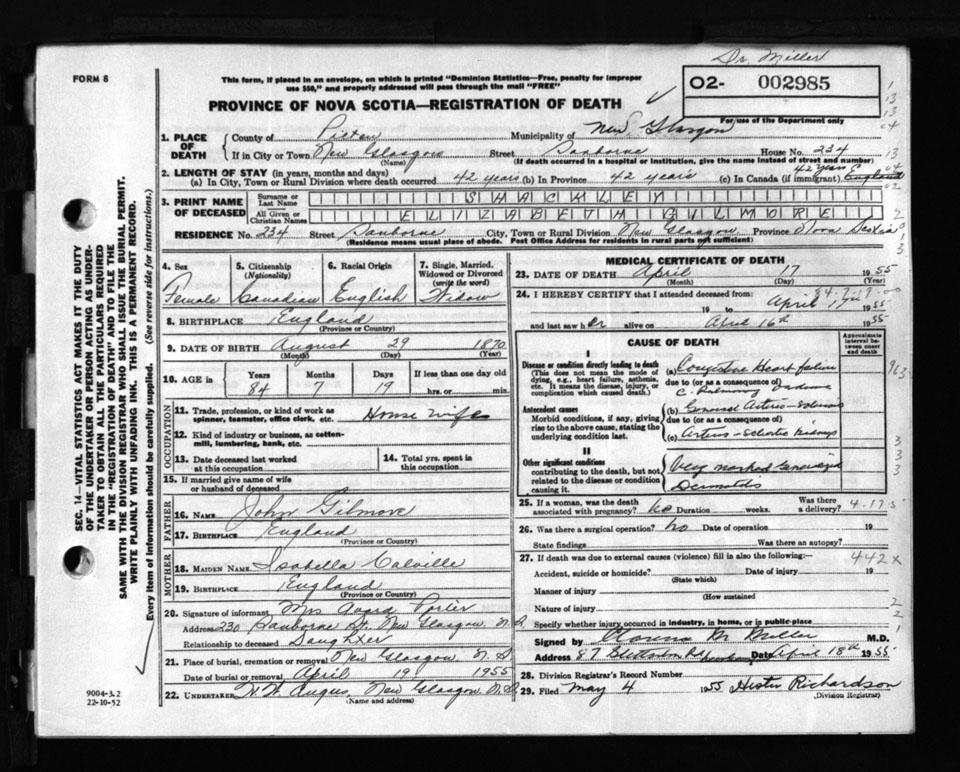 Dr. Miller
FORM 8
This form, if placed in an envelope, on which is printed "Dominion Statistics—Free, penalty for improper
use $50," and properly addressed will pass through the mail "FREE"
O2- 002985
For use of the Department only
PROVINCE OF NOVA SCOTIA—REGISTRATION OF DEATH
1. PLACE OF DEATH
County of Pictou Municipality of New Glasgow
If in City or Town New Glasgow Street House No. 234
(Name) (If death occurred in a hospital or institution, give the name instead of street and number)
2. LENGTH OF STAY (in years, months and days)
(a) In City, Town or Rural Division where death occurred 42 years (b) In Province 42 years (c) In Canada (if immigrant) 42 years England
3. PRINT NAME OF DECEASED
Surname or Last Name SHACKLEY
All Given or Christian Names ELIZABETH GILMORE
RESIDENCE No. 234 Street City, Town or Rural Division New Glasgow Province Nova Scotia
(Residence means usual place of abode. Post Office Address for residents in rural parts not sufficient)
4. Sex Female
5. Citizenship (Nationality) Canadian
6. Racial Origin English
7. Single, Married, Widowed or Divorced (write the word) Widow
8. BIRTHPLACE England
(Province or Country)
9. DATE OF BIRTH August 29 1870
(Month) (Day) (Year)
10. AGE in Years Months Days If less than one day old
84 7 19 hrs. or min.
OCCUPATION
11. Trade, profession, or kind of work as spinner, teamster, office clerk, etc. House wife
12. Kind of industry or business, as cotton-mill, lumbering, bank, etc.
13. Date deceased last worked at this occupation
14. Total yrs. spent in this occupation
15. If married give name of wife or husband of deceased
FATHER
16. NAME John Gilmore
17. BIRTHPLACE England
(Province or Country)
MOTHER
18. MAIDEN NAME Isabella Calville
19. BIRTHPLACE England
(Province or Country)
20. Signature of informant Mrs
Address 230 St. New Glasgow, N.S.
Relationship to deceased Daughter
21. Place of burial, cremation or removal New Glasgow N S
Date of burial or removal April 19 1955
22. UNDERTAKER Angus, New Glasgow N.S.
(Name and address)
MEDICAL CERTIFICATE OF DEATH
23. DATE OF DEATH April 17 1955
(Month) (Day)
24. I HEREBY CERTIFY that I attended deceased from:
19 to April 17th 1955
and last saw her alive on April 16th 1955
CAUSE OF DEATH
Approximate interval between onset and death
I
Disease or condition directly leading to death
(This does not mean the mode of dying, e.g., heart failure, asthenia, etc. It means the disease, injury, or complication which caused death.)
(a) Congestive Heart failure
due to (or as a consequence of)
Antecedent causes
Morbid conditions, if any, giving rise to the above cause, stating the underlying condition last.
(b) General
due to (or as a consequence of)
(c)
II
Other significant conditions
contributing to the death, but not related to the disease or condition causing it.
Very marked
Dermatitis
25. If a woman, was the death associated with pregnancy? No Duration weeks. Was there a delivery?
26. Was there a surgical operation? no Date of operation 19
State findings Was there an autopsy?
27. If death was due to external causes (violence) fill in also the following:—
442X
Accident, suicide or homicide? Date of injury 19
(State which)
Manner of injury
(How sustained
Nature of injury
Specify whether injury occurred in industry, in home, or in public place
Signed by Miller M.D.
Address 87 Date April 18th 1955
28. Division Registrar's Record Number
29. Filed May 4 1955 Hester Richardson
(Division Registrar)
SEC. 14—VITAL STATISTICS ACT MAKES IT THE DUTY
OF THE UNDERTAKER OR PERSON ACTING AS UNDER-
TAKER TO OBTAIN ALL THE PARTICULARS REQUIRED
IN THE "REGISTRATION OF DEATH" AND TO FILE THE
SAME WITH THE DIVISION REGISTRAR WHO SHALL ISSUE THE BURIAL PERMIT.
WRITE PLAINLY WITH UNFADING INK. THIS IS A PERMANENT RECORD.
Every item of information should be carefully supplied. (See reverse side for instructions.)
9004-3.2
22-10-52